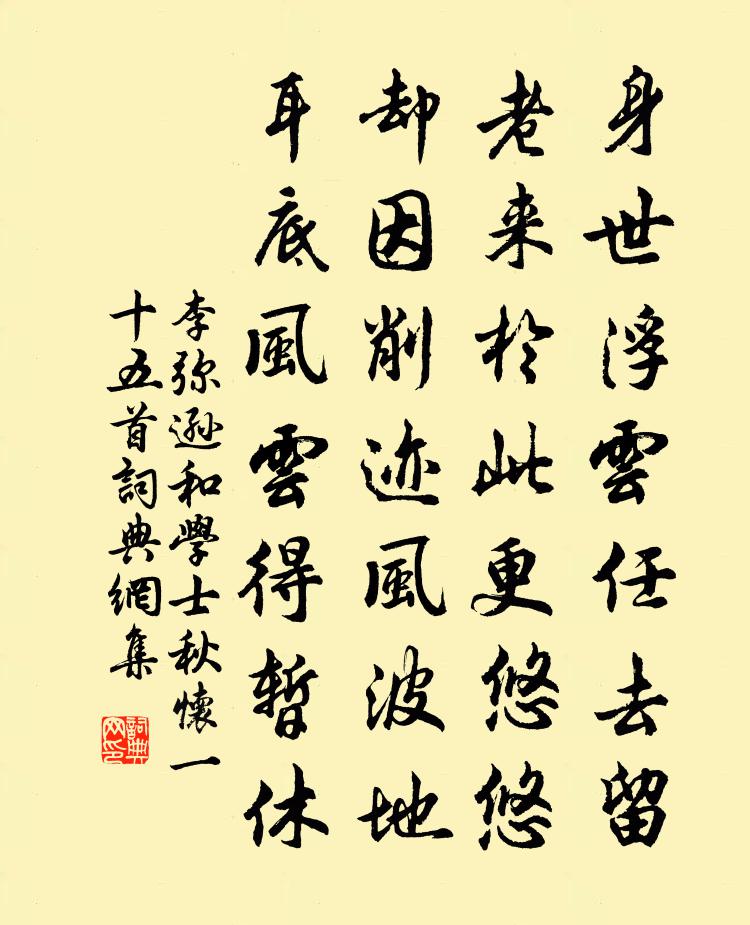 身世浮雲任去留
老来於此更悠悠
却因削迹風波地
耳底風雲得暫休
李弥遜和學士秋懷一
十五首詞典網集
詞典网印